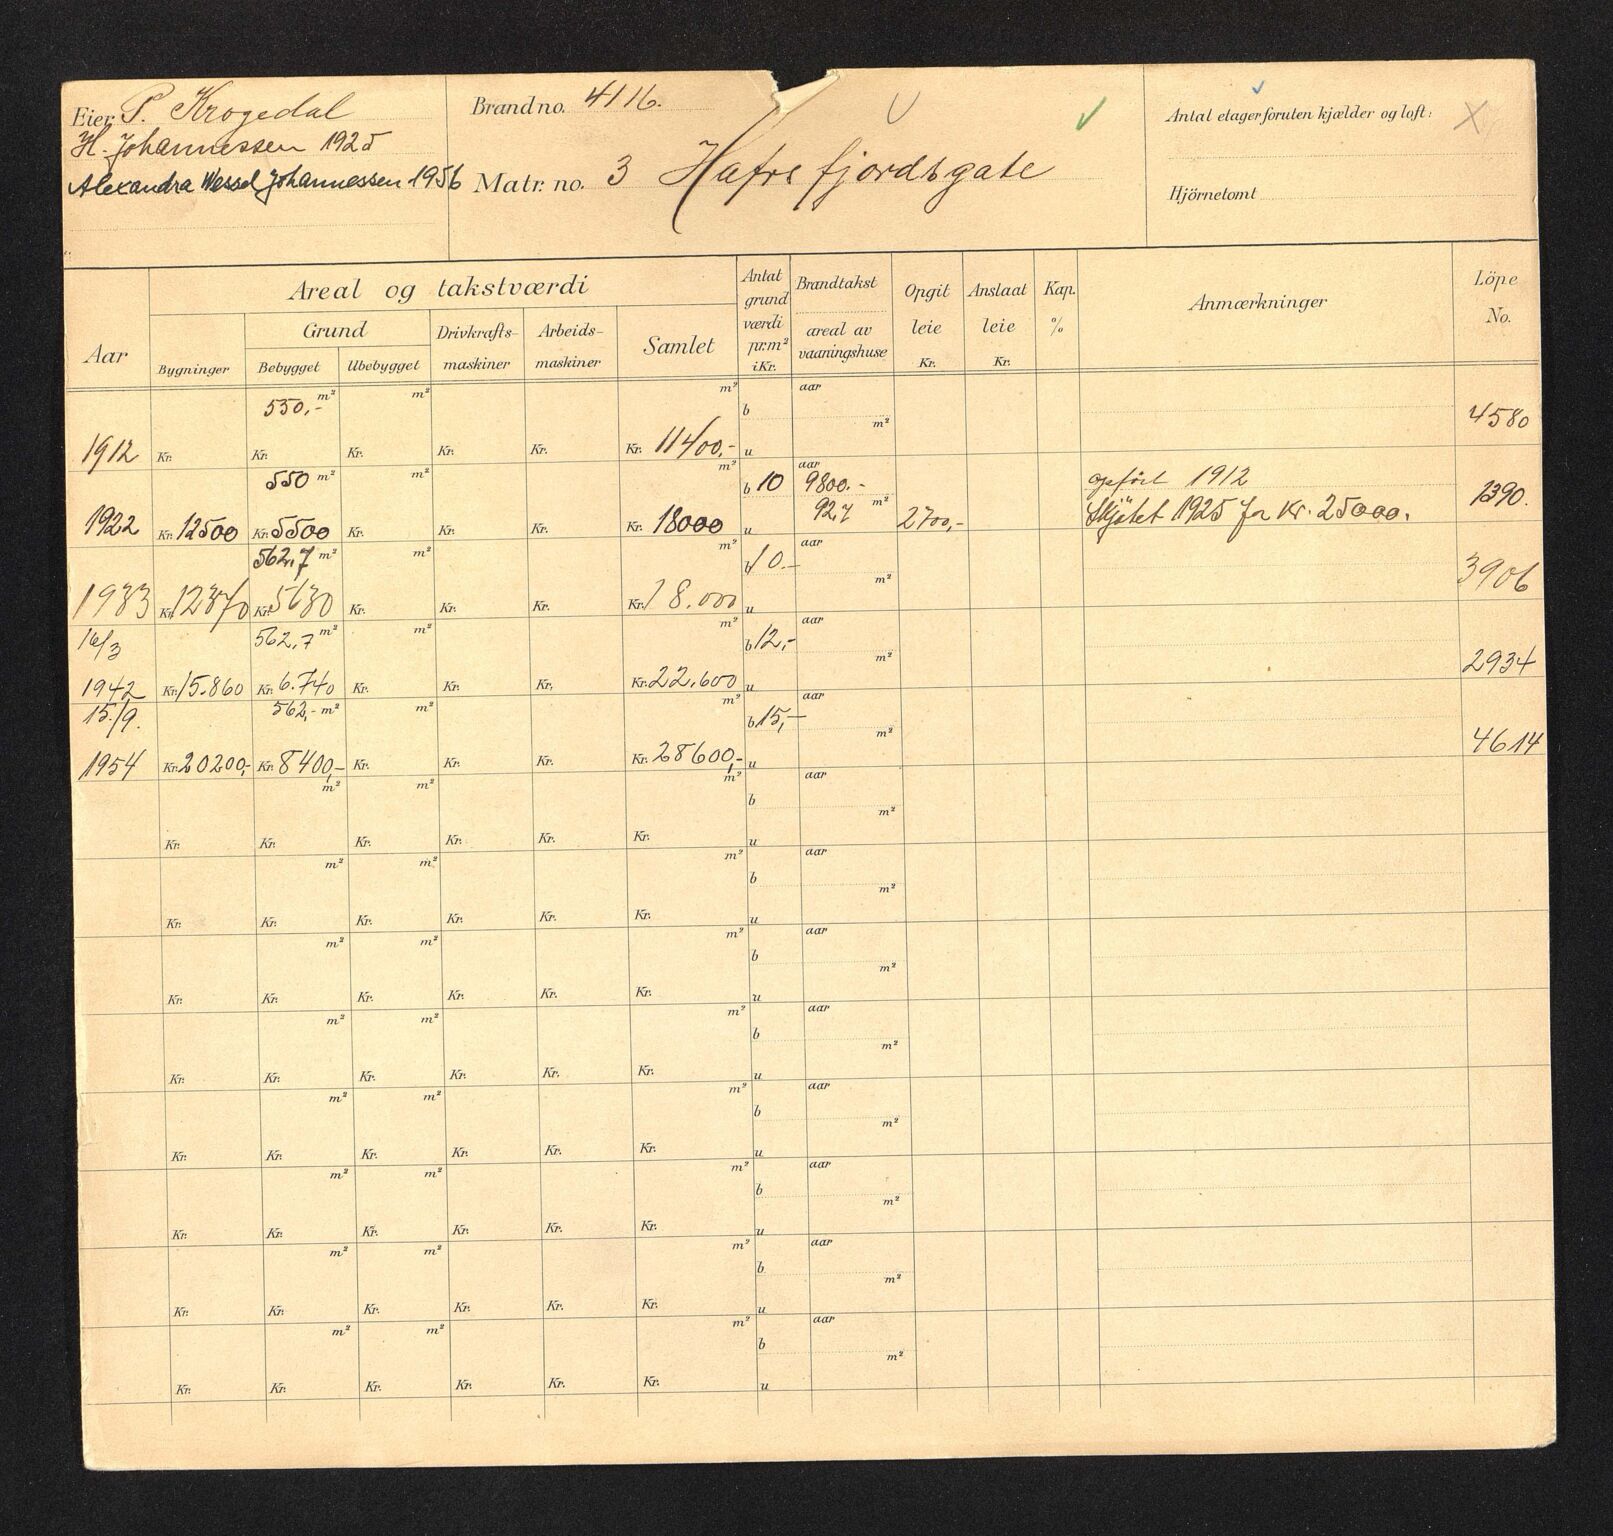 Eier P. Krogedal
H. Johannessen 1925
Alexandra Wessel Johannessen 1956
Brand no. 4116.
Matr. no. 3 Hafrsfjordsgate
Antal etager foruten kjælder og loft: X
Hjörnetomt
Aar
Areal og takstværdi
Bygninger
Grund
Bebygget
Ubebygget
Drivkrafts-
maskiner
Arbeids-
maskiner
Samlet
Antat
grund
værdi
pr. m²
i Kr.
Brandtakst
areal av
vaaningshuse
Opgit
leie
Kr.
Anslaat
leie
Kr.
Kap.
%
Anmærkninger
Löpe
No.
550,- m² m² m² b aar m² 4580
1912 Kr. Kr. Kr. Kr. Kr. Kr. 11400,- u
550 m² m² m² b 10 aar 9800.- opfört 1912
92,7 m² 1390.
1922 Kr. 12500 Kr. 5500 Kr. Kr. Kr. Kr. 18000 u 2700,- Skjötet 1925 for Kr. 25000.
562,7 m² m² m² b 10.- aar m² 3906
1933 Kr. 12370 Kr. 5630 Kr. Kr. Kr. Kr. 18.000 u
16/3 562,7 m² m² m² b 12,- aar m² 2934
1942 Kr. 15.860 Kr. 6.740 Kr. Kr. Kr. Kr. 22.600 u
15./9. 562,- m² m² m² b 15,- aar m² 4614
1954 Kr. 20200,- Kr. 8400,- Kr. Kr. Kr. Kr. 28600,- u
m² m² m² b aar m²
Kr. Kr. Kr. Kr. Kr. Kr. u
m² m² m² b aar m²
Kr. Kr. Kr. Kr. Kr. Kr. u
m² m² m² b aar m²
Kr. Kr. Kr. Kr. Kr. Kr. u
m² m² m² b aar m²
Kr. Kr. Kr. Kr. Kr. Kr. u
m² m² m² b aar m²
Kr. Kr. Kr. Kr. Kr. Kr. u
m² m² m² b aar m²
Kr. Kr. Kr. Kr. Kr. Kr. u
m² m² m² b aar m²
Kr. Kr. Kr. Kr. Kr. Kr. u
m² m² m² b aar m²
Kr. Kr. Kr. Kr. Kr. Kr. u